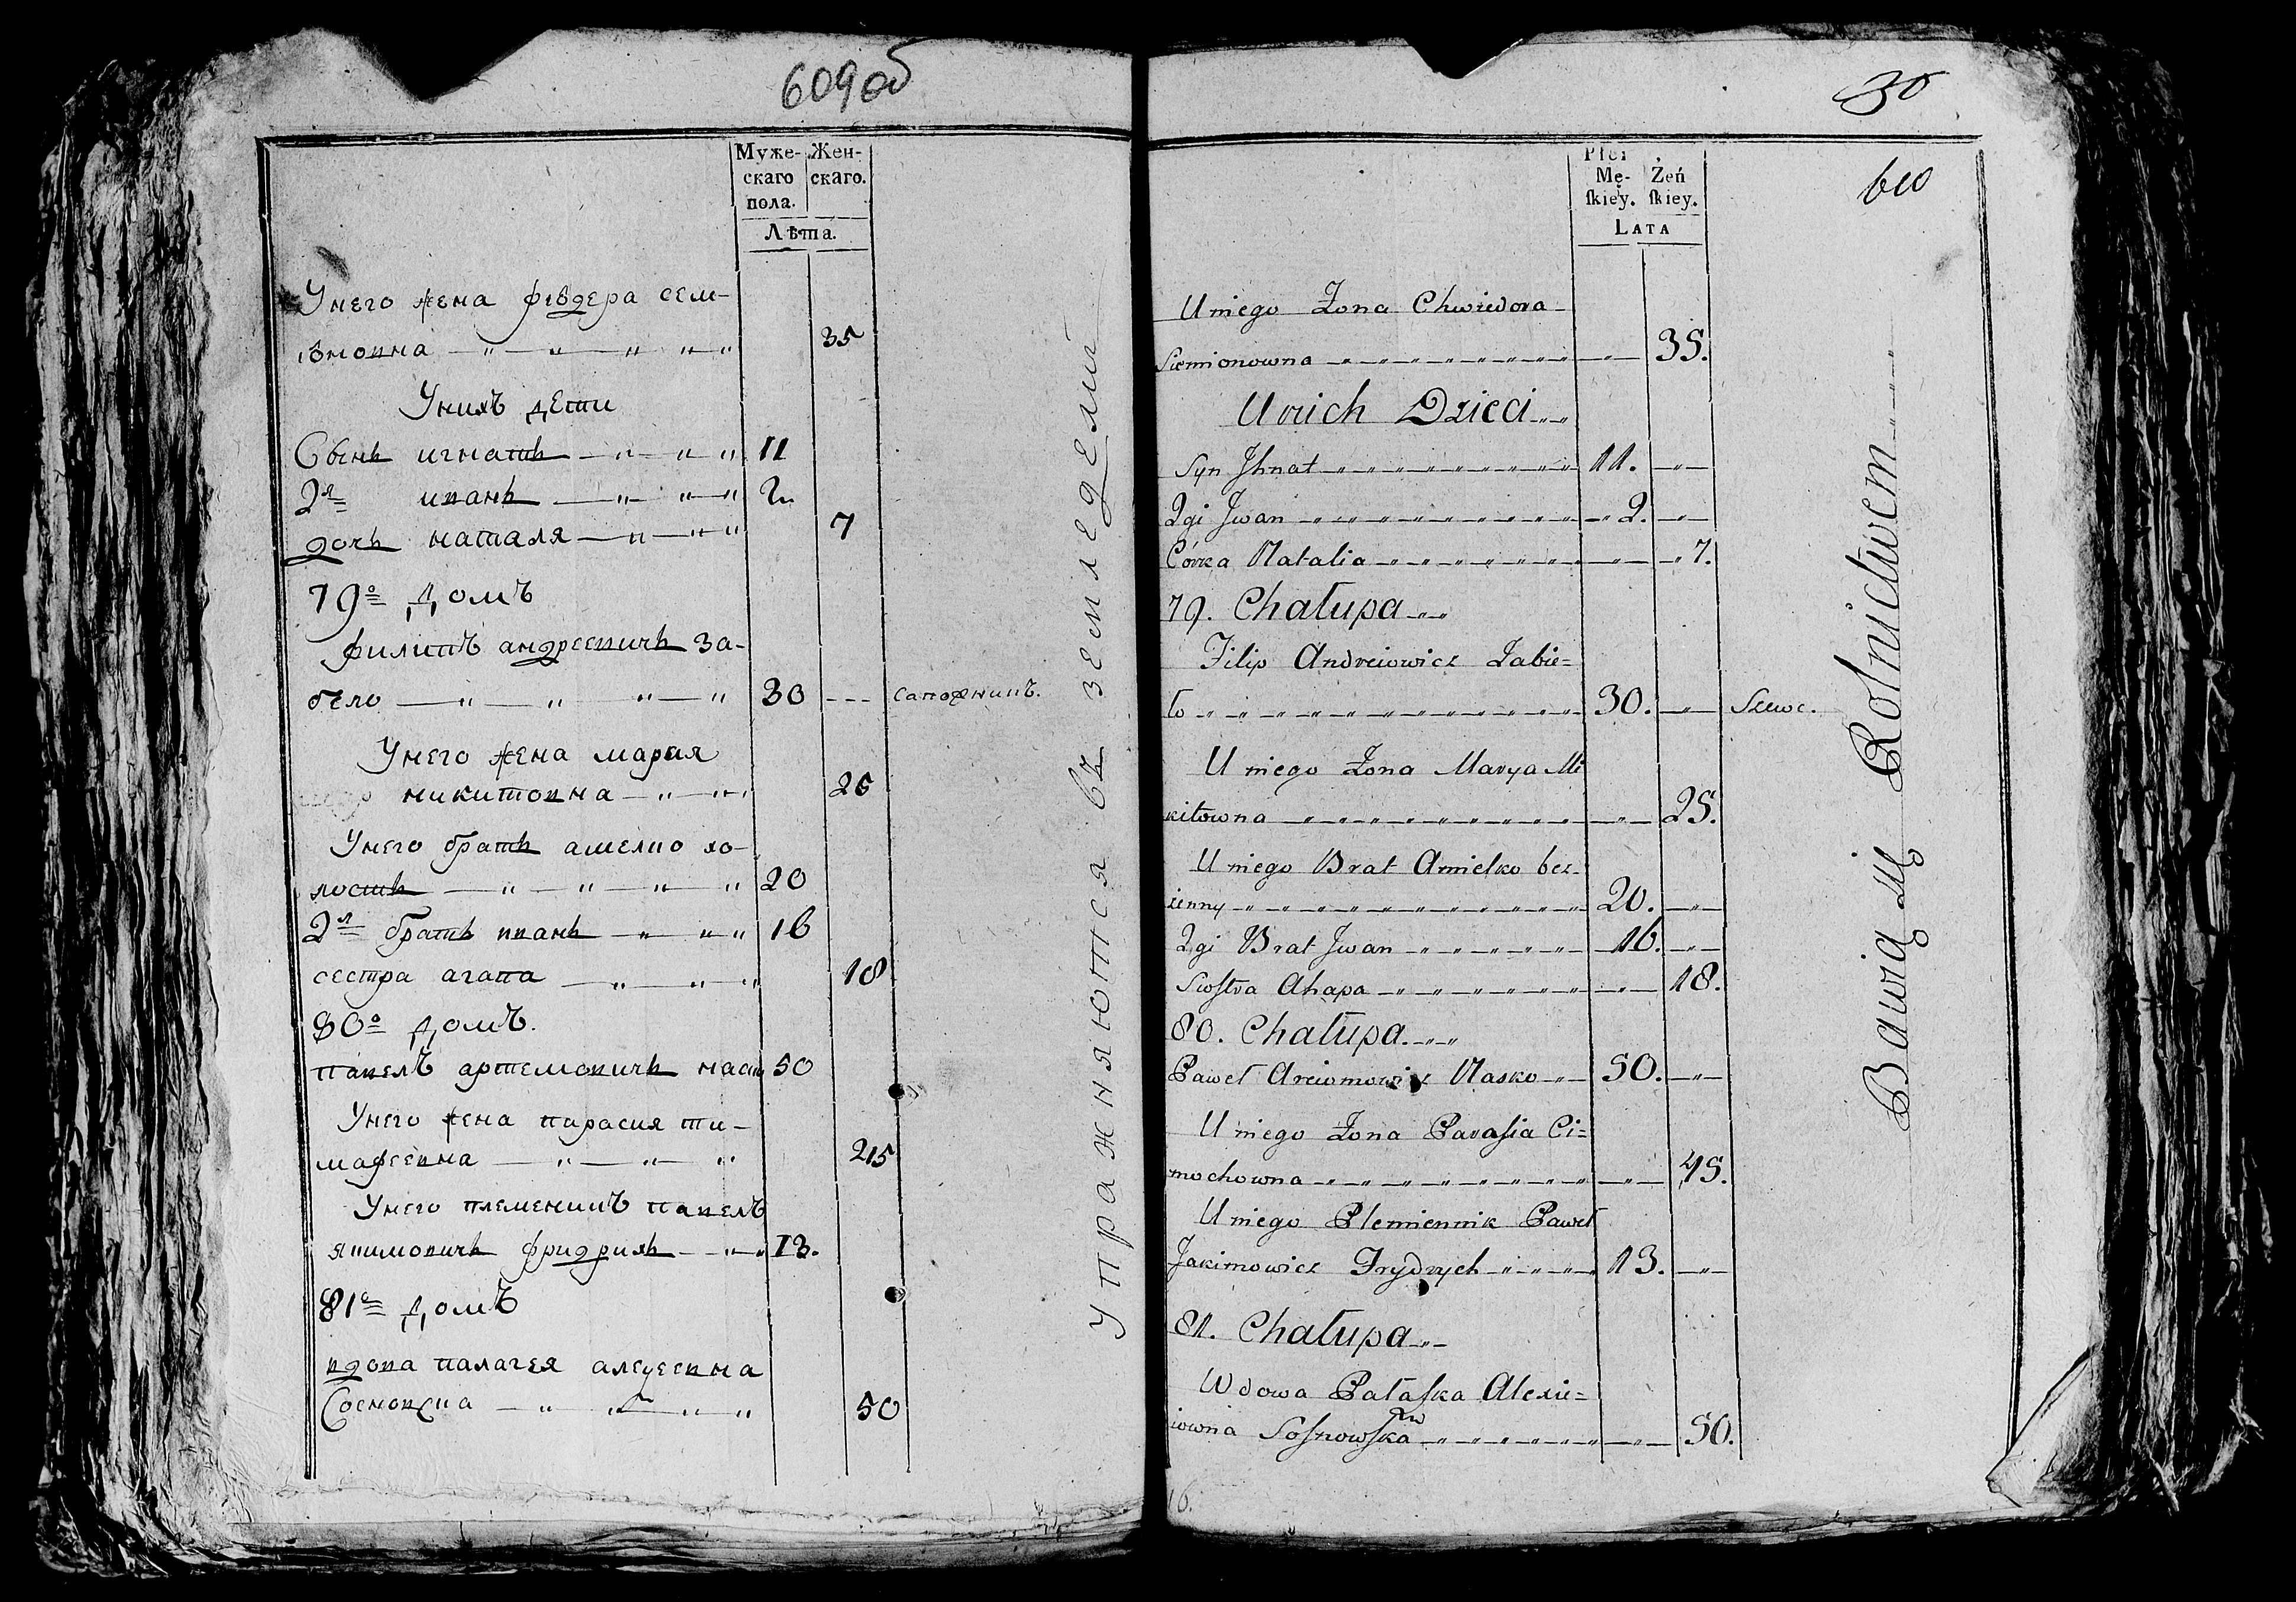 609об
Муже- Жен-
скаго скаго.
пола.
Лѣта.
Унего жена фѣвдера сем-
іѣновна — " — " — " — " 35
Унихъ дети
Сынъ игнатъ — " — " — " 11
2й иванъ — " — " — " 2
дочь наталя — " — " — " 7
79о домъ
филипъ андреевичъ За-
бело — " — " — " — " 30 --- сапожникъ.
Унего жена мария
никитовна — " — " 26
Унего братъ амелко хо-
лостъ — " — " — " — " 20
2й братъ иванъ — " — " — " 16
сестра агапа — " — " — " 18
80о домъ.
павелъ артемовичъ наско 50
Унего жена парасия ти-
мафеевна — " — " — " 45
Унего племеникъ павелъ
якимовичъ фридрихъ — " — " 13.
81о домъ
вдова палагея алексеевна
Сосновска — " — " — " — " 50
Упражняются въ земледелии
30
610
Płci
Mę- Żeń
skiey. skiey.
LATA
U niego Żona Chwiedora
Siemionowna — " — " — " — 35.
U nich Dzieci — "
Syn Jhnat — " — " — " — 11. — " —
2gi Jwan — " — " — " — " 2. — " —
Córka Natalia — " — " — " — " 7.
79. Chałupa — "
Filip Andreiowicz Zabie=
ło — " — " — " — " — 30. — " — Szewc.
U niego Żona Marya Mi
kitowna — " — " — " — " — 25.
U niego Brat Amielko bez-
żenny — " — " — " — " — 20. — " —
2gi Brat Jwan — " — " — " — 16. — " —
Siostra Ahapa — " — " — " — " — 18.
80. Chałupa. — "
Paweł Arciomowicz Nasko — " — 50. — " —
U niego Żona Parasia Ci=
mochowna — " — " — " — " — 45.
U niego Plemiennik Paweł
Jakimowicz Frydrych — " — " — 13. — " —
81. Chałupa — "
Wdowa Pałaska Alexie=
iowna Sosnowska — " — " — " — " — 50.
Bawią się Rolnictwem
16.